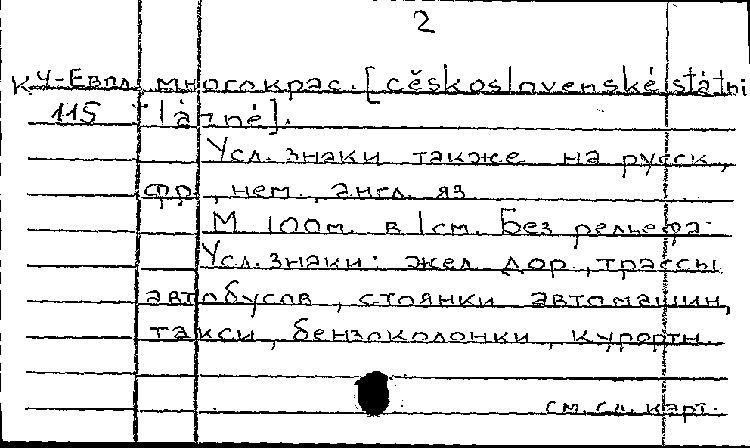 2
КУ-Евпл. многокрас. [československé státni
115 lázně].
Усл. знаки также на русск.,
фр., нем., англ. яз
М 100м. в 1см. Без рельефа.
Усл. знаки: жел дор, трассы
автобусов, стоянки автомашин,
такси, бензоколонки, курортн.
см. сл. карт.